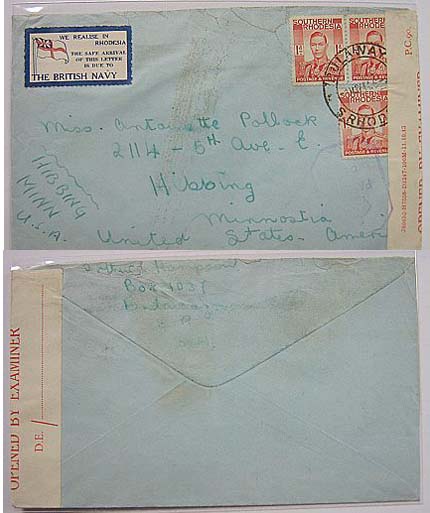 WE REALISE IN
RHODESIA
THE SAFE ARRIVAL
OF THIS LETTER
IS DUE TO
THE BRITISH NAVY
SOUTHERN
RHODESIA
1D
POSTAGE & REVENUE
SOUTHERN
RHODESIA
SOUTHERN
RHODESIA
POSTAGE & REVENUE
BULAWAYO
S. RHOD
P.C. 90.
OPENED BY EXAMINER
Miss. Antoinette Pollock
2114 - 5th Ave. E.
Hibbing
Minnostia
United States. Ameri
HIBBING
MINN
U.S.A.
Box 1037
OPENED BY EXAMINER
D.E. /